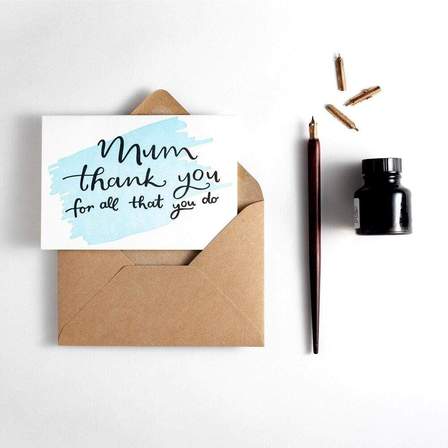 Mum
thank you
for all that you do